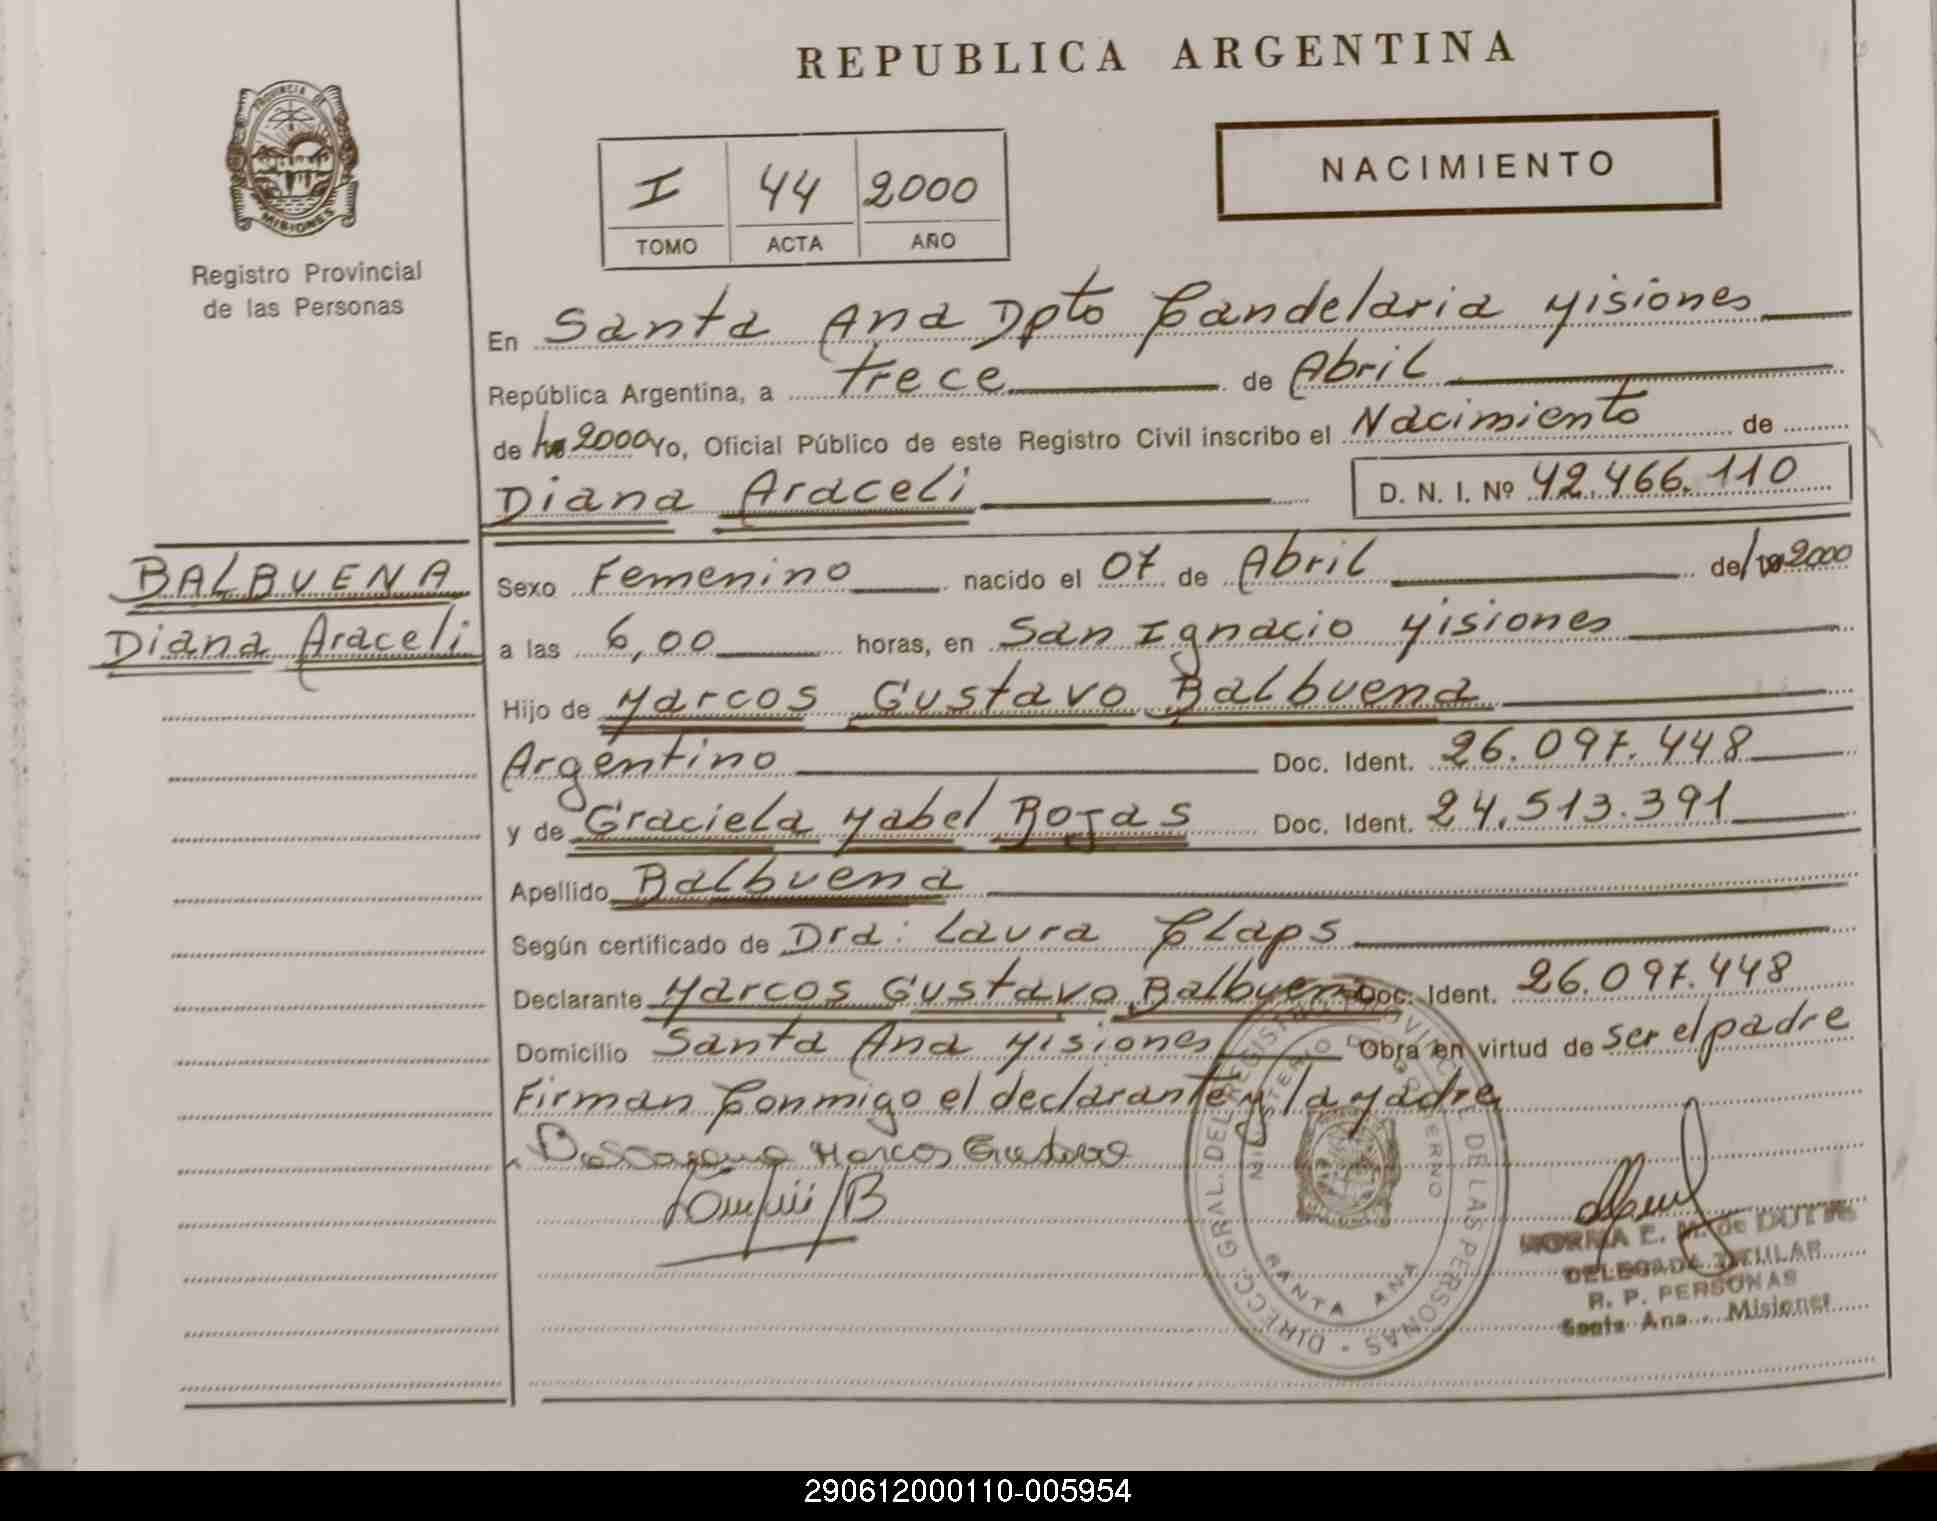 REPUBLICA ARGENTINA
PROVINCIA DE
MISIONES
Registro Provincial
de las Personas
I 44 2000
TOMO ACTA AÑO
NACIMIENTO
En Santa Ana Dpto Candelaria Misiones
República Argentina, a trece de Abril
de 2000 Yo, Oficial Público de este Registro Civil inscribo el Nacimiento de
Diana Araceli D. N. I. Nº 42.466.110
BALBUENA
Diana Araceli
Sexo Femenino nacido el 07 de Abril de 2000
a las 6,00 horas, en San Ignacio Misiones
Hijo de Marcos Gustavo Balbuena
Argentino Doc. Ident. 26.097.448
y de Graciela Mabel Rojas Doc. Ident. 24.513.391
Apellido Balbuena
Según certificado de Dra: Laura Claps
Declarante Marcos Gustavo Balbuena Doc. Ident. 26.097.448
Domicilio Santa Ana Misiones Obra en virtud de ser el padre
Firman Conmigo el declarante y la Madre
Marcos Gustavo
DIRECC. GRAL. DEL REGISTRO PROVINCIAL DE LAS PERSONAS
MINISTERIO DE GOBIERNO
SANTA ANA
NORMA E. M. de DUTRA
DELEGADA TITULAR
R. P. PERSONAS
Santa Ana - Misiones
290612000110-005954